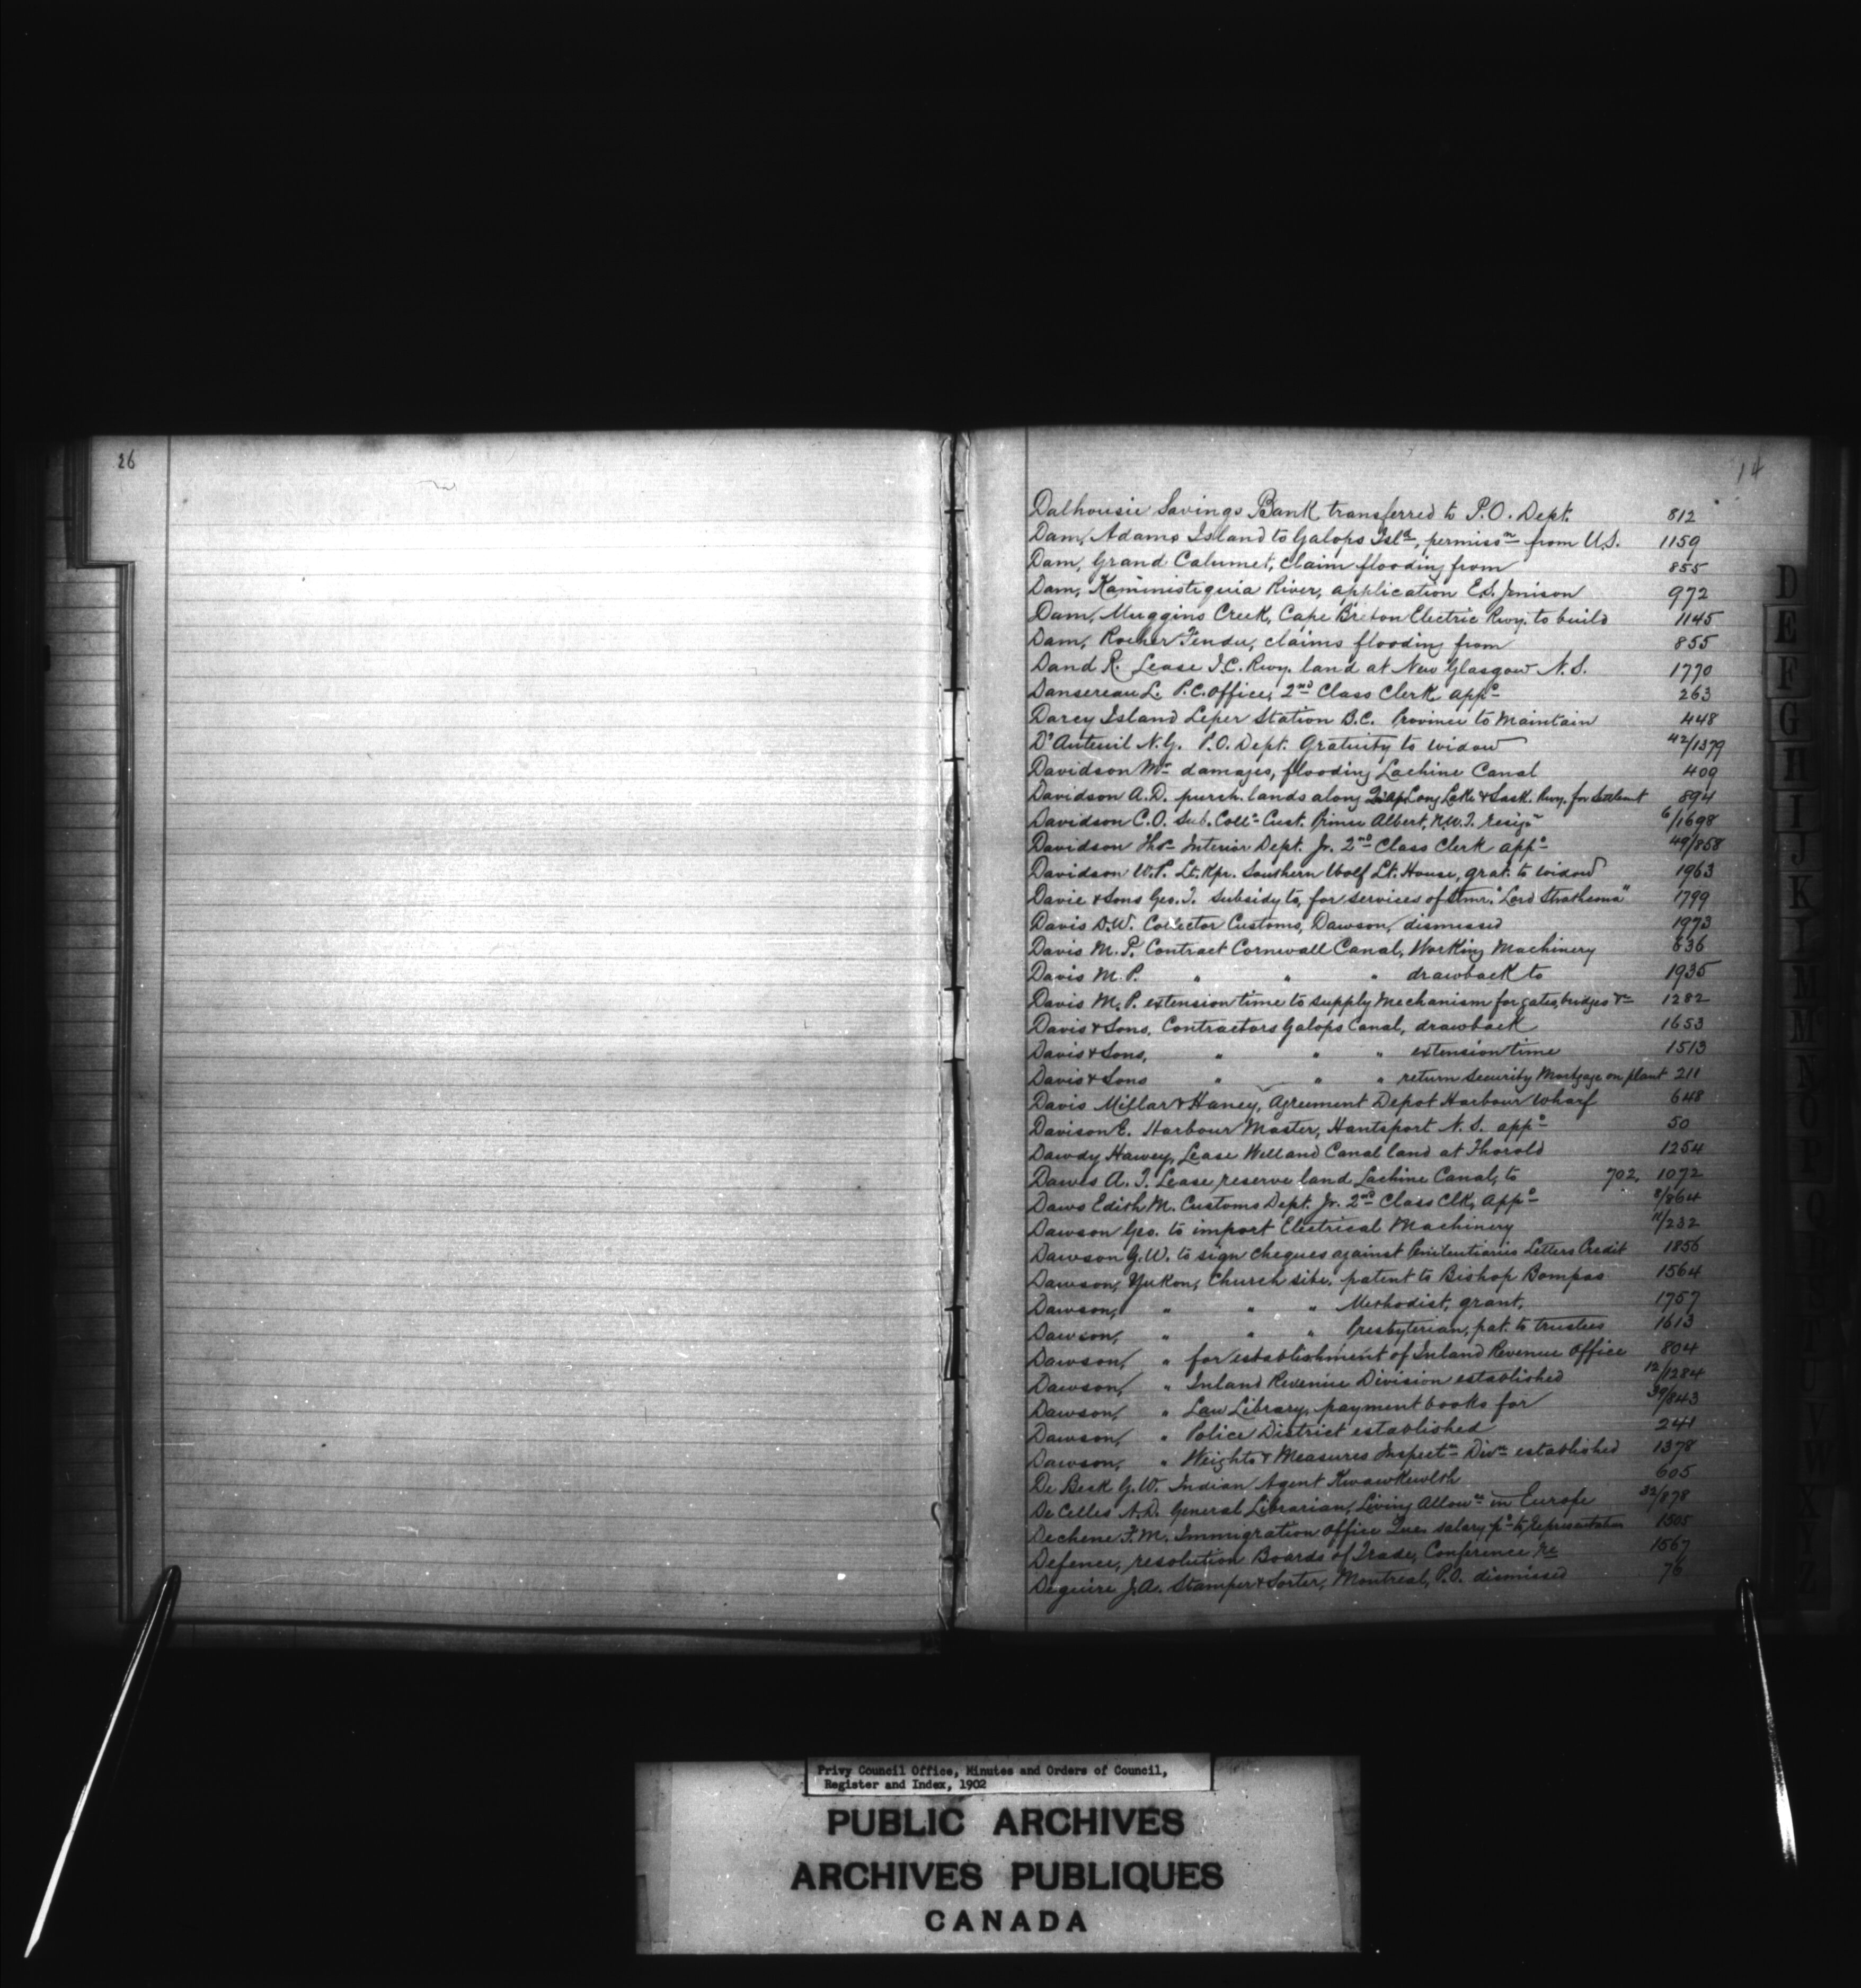 26
14
Dalhousie Savings Bank transferred to P.O. Dept. 812
Dam, Adams Island to Galops Isld, permissn from U.S. 1159
Dam, Grand Calumet, claim flooding from 855
Dam, Kaministiquia River, application Ed. Jenison 972
Dam, Muggins Creek, Cape Breton Electric Rwy. to build 1145
Dam, Rocher Fendu, claims flooding from 855
Dand R. Lease I.C. Rwy. land at New Glasgow N.S. 1770
Dansereau L. P.C. Office, 2nd Class Clerk appo 263
Darcy Island Leper Station B.C. Province to maintain 448
D'Auteuil N.G. P.O. Dept. Gratuity to widow 42/1379
Davidson Mr damages, flooding Lachine Canal 409
Davidson A.D. purch. lands along Qu'Ap. Long Lake & Sask. Rwy. for Settlemt 894
Davidson C.O. Sub. Collr Cust. Prince Albert, N.W.T. resign 6/1698
Davidson Thos Interior Dept. Jr. 2nd Class Clerk appo 49/858
Davidson W.P. Lt. Kpr. Southern Wolf Lt. House, grat. to widow 1963
Davie & Sons Geo. T. subsidy to, for services of Stmr. "Lord Strathcona" 1799
Davis D.W. Collector Customs, Dawson, dismissed 1973
Davis M.P. Contract Cornwall Canal, Working Machinery 636
Davis M.P. " " " drawback to 1935
Davis M.P. extension time to supply mechanism for gates, bridges &c 1282
Davis & Sons, Contractors Galops Canal, drawback 1653
Davis & Sons, " " " extension time 1513
Davis & Sons " " " return security Mortgage on plant 211
Davis Millar & Haney, Agreement Depot Harbour Wharf 648
Davison E. Harbour Master, Hantsport N.S. appo 50
Dawdy Hawey, Lease Welland Canal land at Thorold 1254
Dawes A.J. Lease reserve land Lachine Canal, to 702, 1072
Daws Edith M. Customs Dept. Jr. 2nd Class Clk, appo 8/864
Dawson Geo. to import Electrical Machinery 11/232
Dawson G.W. to sign cheques against Penitentiaries Letters Credit 1856
Dawson, Yukon, Church site, patent to Bishop Bompas 1564
Dawson, " " " Methodist, grant, 1757
Dawson, " " " Presbyterian, pat. to trustees 1613
Dawson, " for establishment of Inland Revenue Office 804
Dawson, " Inland Revenue Division established 12/1284
Dawson, " Law Library, payment books for 39/843
Dawson, " Police District established 241
Dawson, " Weights & Measures Inspectn Divn established 1378
De Beck G.W. Indian Agent Kwawkewlth 605
De Celles A.D. General Librarian, Living Allowce in Europe 32/878
Dechene F.M. Immigration Office Que. salary pd to Representation 1505
Defence, resolution Boards of Trade, Conference re 1567
Deguire J.A. Stamper & Sorter, Montreal, P.O. dismissed 76
D
E
F
G
H
I
J
K
L
M
Privy Council Office, Minutes and Orders of Council,
Register and Index, 1902
PUBLIC ARCHIVES
ARCHIVES PUBLIQUES
CANADA